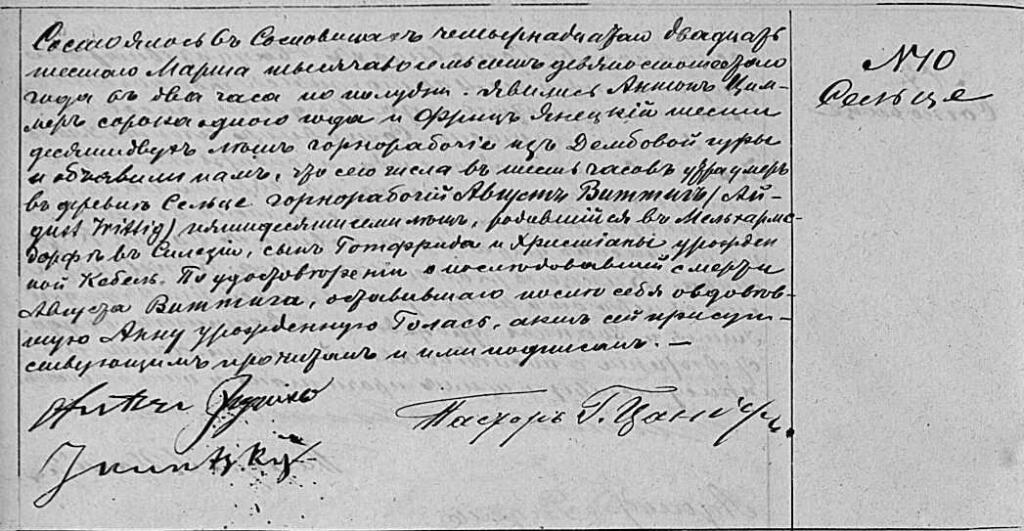 Состоялось въ Сосновицахъ четырнадцатаго двадцать
шестаго Марта тысяча восемьсотъ девяносто
года въ два часа по полудни. Явились Антонъ Цим-
меръ сорока одного года и Фрицъ Янецкій шести
десяти двухъ лѣтъ горнорабочіе изъ Дембовой гуры
и объявили намъ, что сего числа въ шесть часовъ утра умеръ
въ деревнѣ Сельце горнорабочій Августъ Виттигъ (Au-
gust Wittig) пятидесяти семи лѣтъ, родившійся въ
дорфѣ въ Силезіи, сынъ Готфрида и Христіаны урожден
ной Кебель. По удостовѣреніи о послѣдовавшей смерти
Августа Виттига, оставившаго послѣ себя овдовѣв-
шую Анну урожденную Голасъ, актъ сей присут-
ствующимъ прочитанъ и ими подписанъ. —
Пасторъ Г.
№10
Сельце